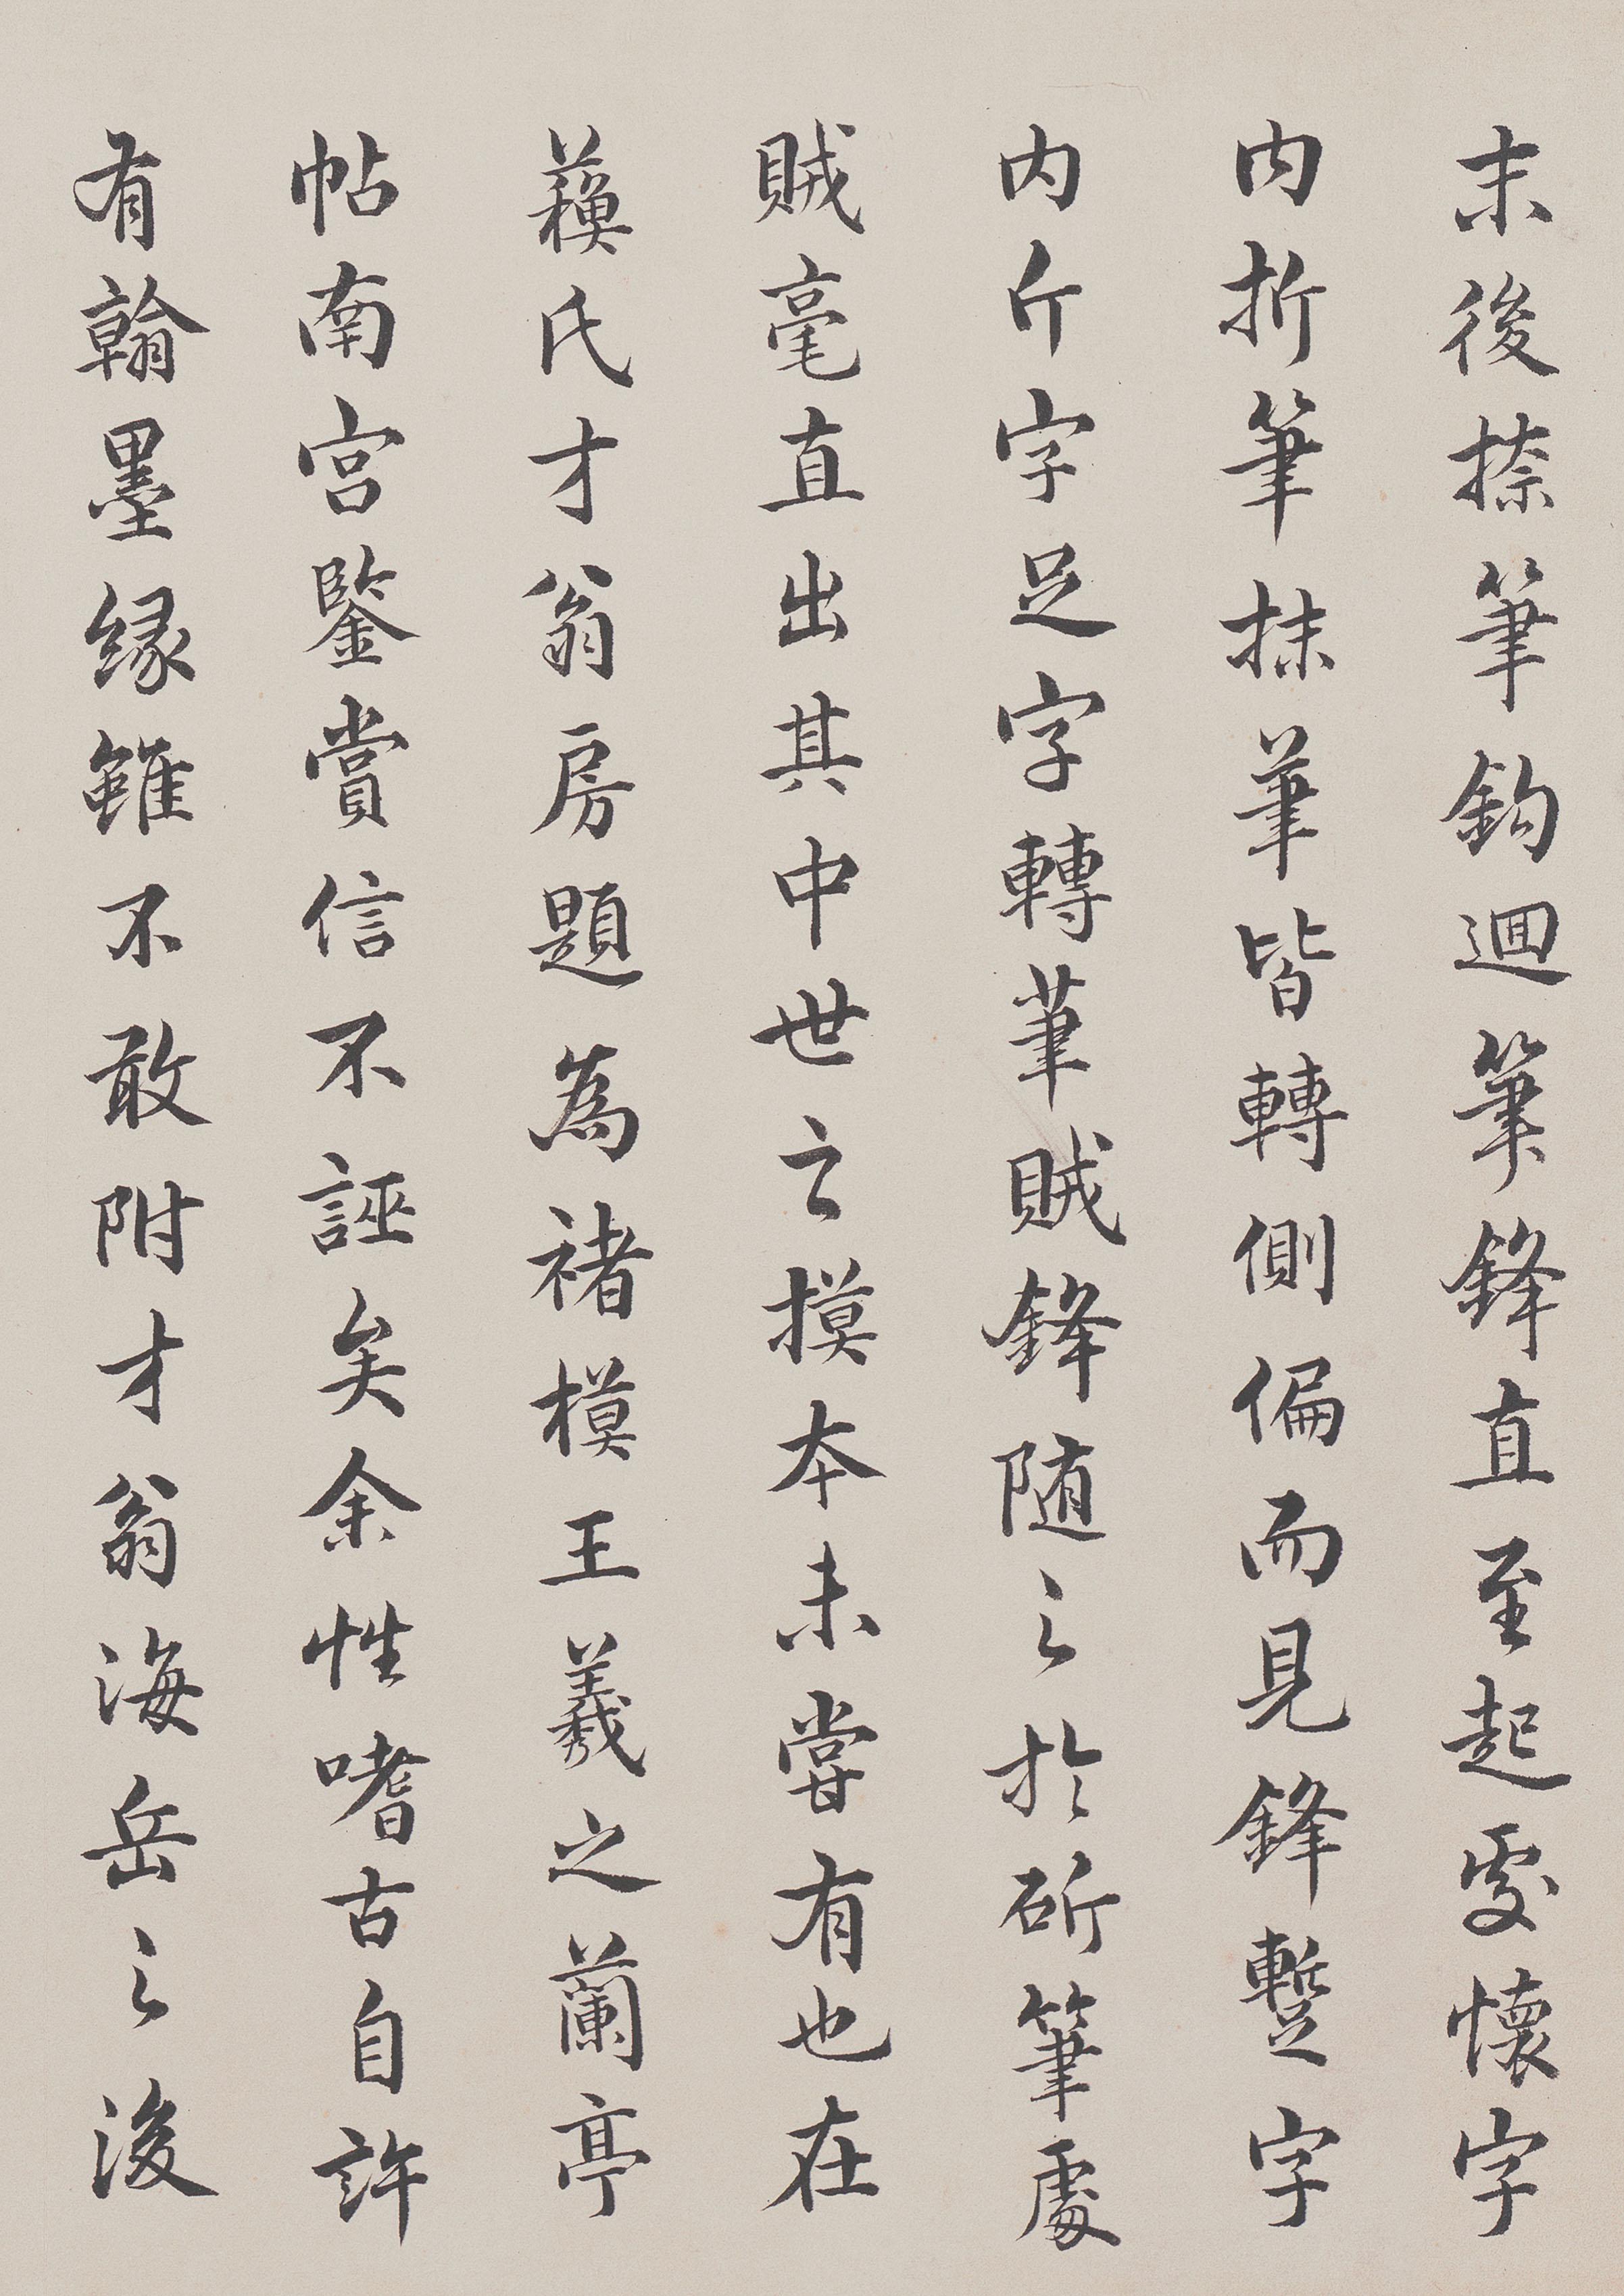 末後捺筆鈎迴筆鋒直至起處懷字
内折筆抹筆皆轉側偏而見鋒蹔字
内斤字足字轉筆賊鋒随之於斫筆處
賊毫直出其中世之摸本未嘗有也在
蘓氏才翁房題為褚模王羲之蘭亭
帖南宫鑒賞信不誣矣余性嗜古自許
有翰墨縁雖不敢附才翁海岳之後